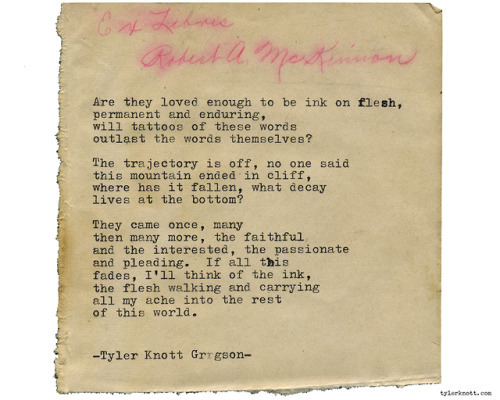 Ex Libris
Robert A. McKinnon
Are they loved enough to be ink on flesh,
permanent and enduring,
will tattoos of these words
outlast the words themselves?
The trajectory is off, no one said
this mountain ended in cliff,
where has it fallen, what decay
lives at the bottom?
They came once, many
then many more, the faithful
and the interested, the passionate
and pleading.  If all this
fades, I'll think of the ink,
the flesh walking and carrying
all my ache into the rest
of this world.
-Tyler Knott Grrgson-
tylerknott.com